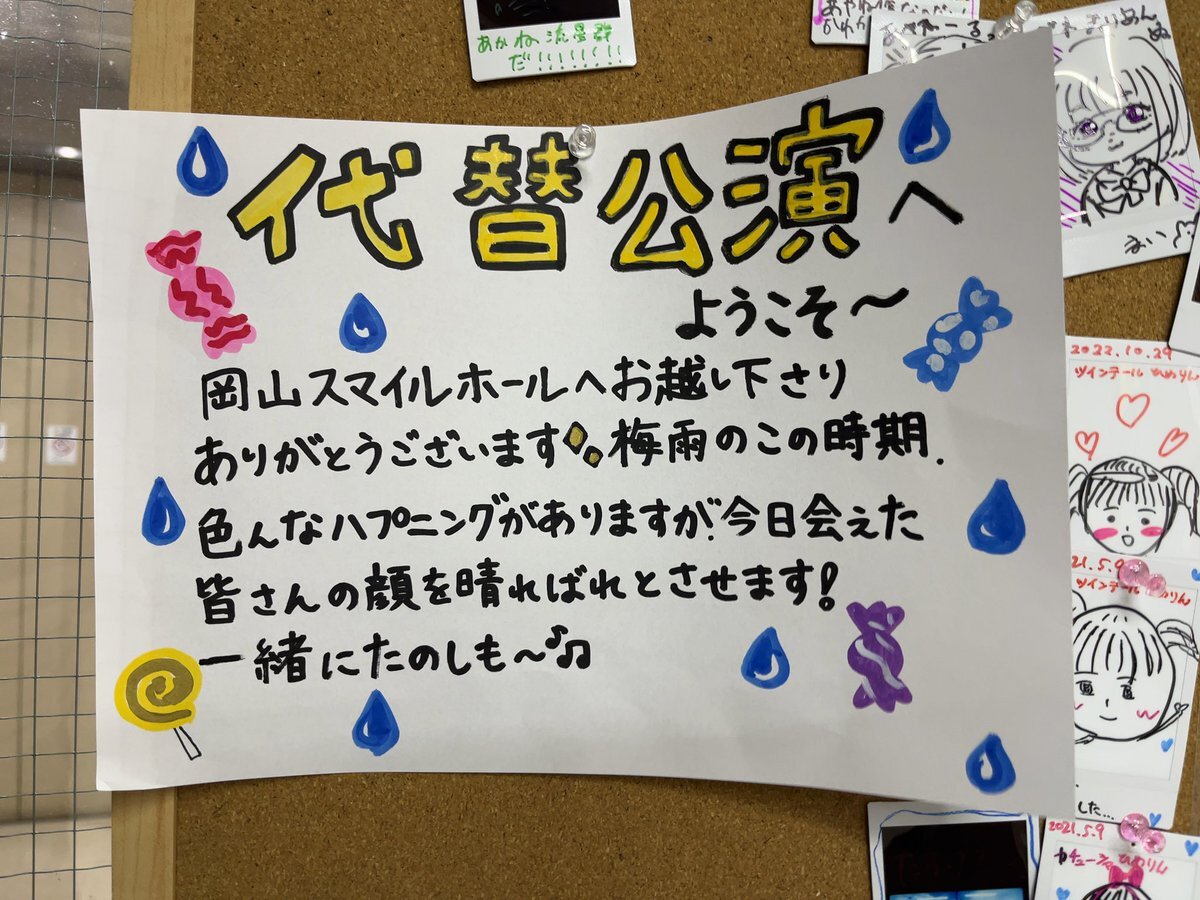 あかね流星群
だ!!!!!!!
代替公演へ
ようこそ〜
岡山スマイルホールへお越し下さり
ありがとうございます 梅雨のこの時期、
色んなハプニングがありますが、今日会えた
皆さんの顔を晴ればれとさせます!
一緒にたのしも〜♪♫
2022.10.29
ツインテール ひめりん
21.5.9
ツインテール
りん
した...
2021.5.9
カチューシャ ひめりん